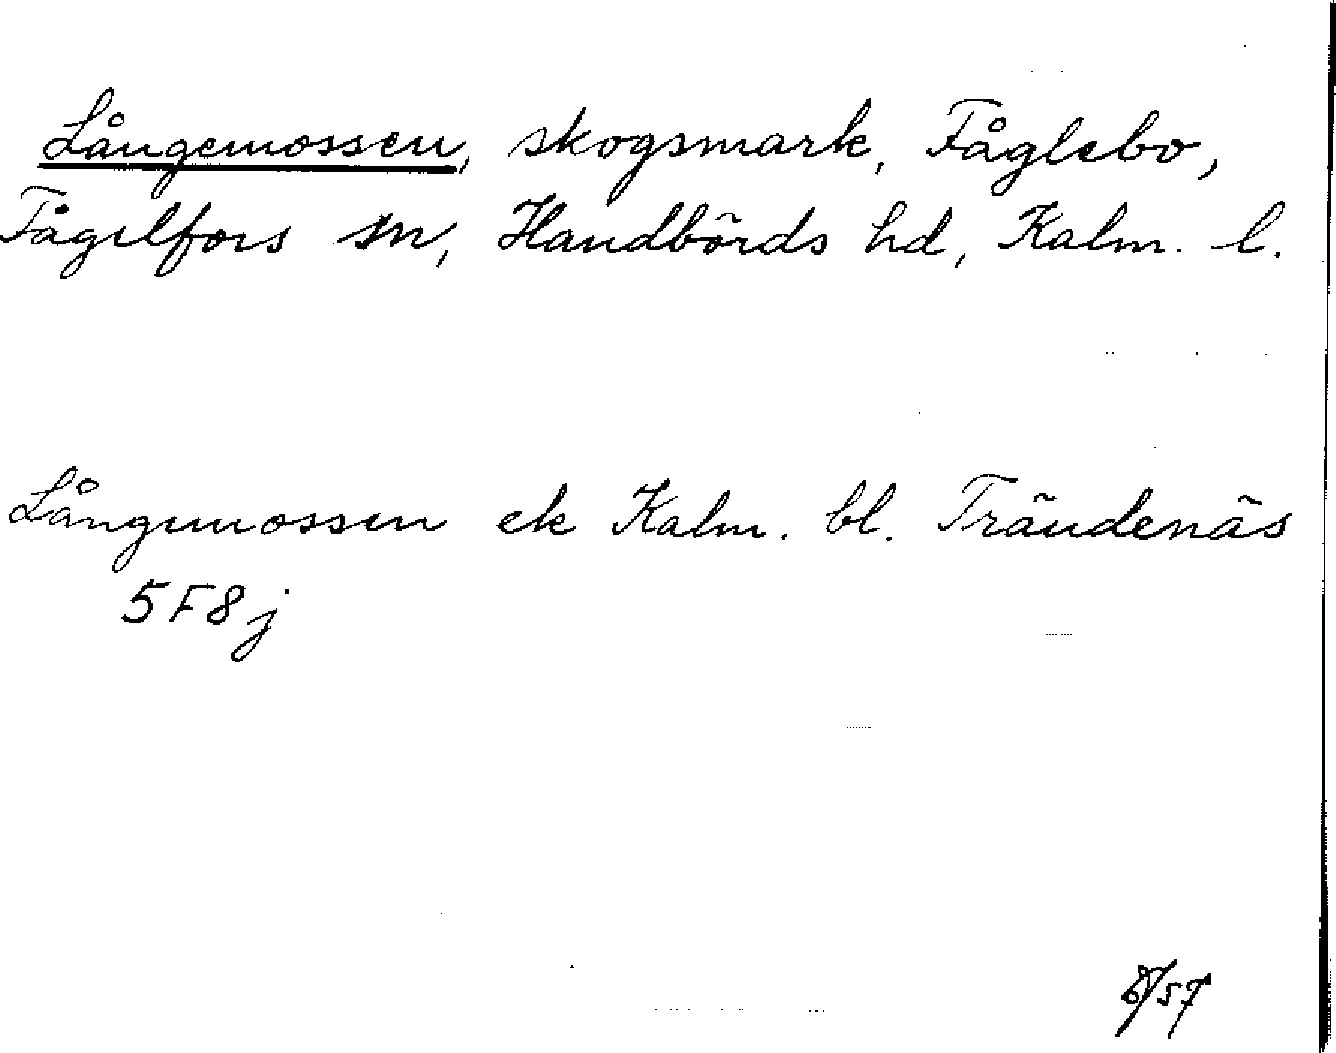 Långemossen, skogsmark, Fåglebo,
Fågelfors sn, Handbörds hd, Kalm. l.
Långemossen ek Kalm. bl. Trändenäs
5F8j